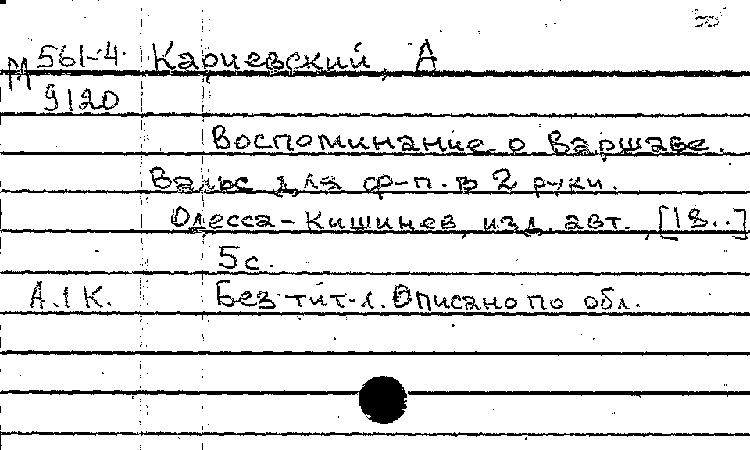 М 561-4 Кариевский, А
9120
Воспоминание о Варшаве.
Вальс для ф-п. в 2 руки.
Одесса-Кишинев, изд. авт., [18..]
5 с.
А.1К. Без тит. л. Описано по обл.